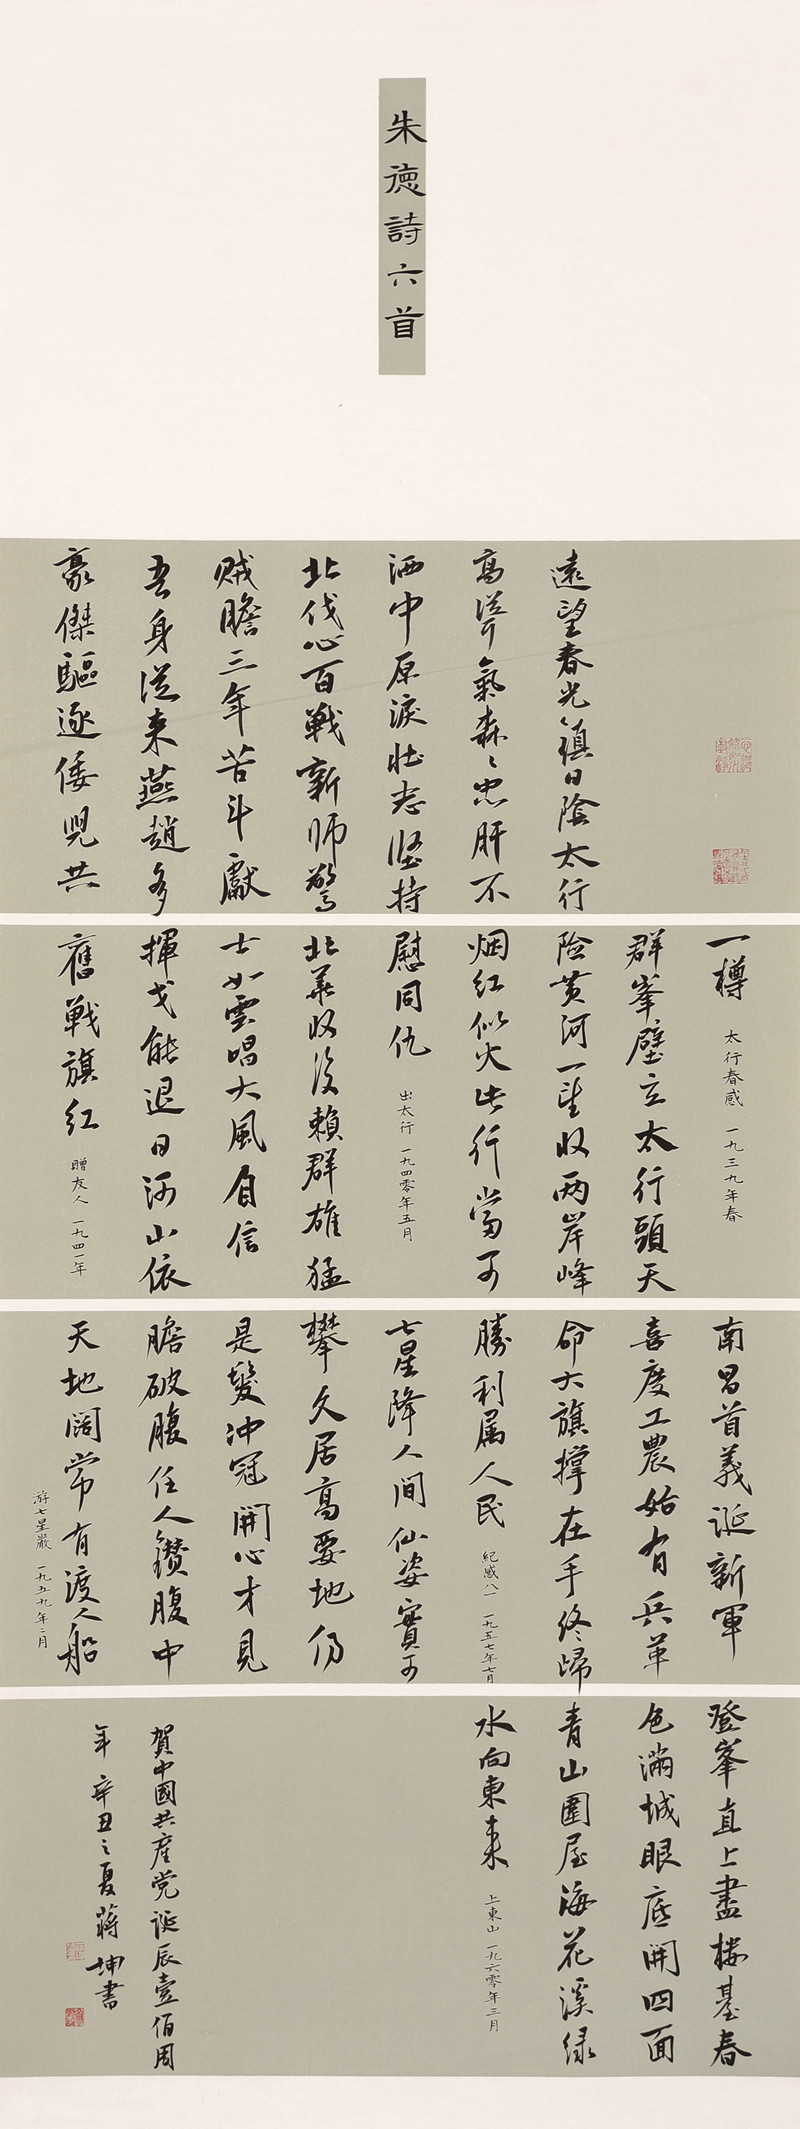 朱德詩六首
遠望春光鎮日陰太行
高聳氣森々忠肝不
洒中原淚壯志堅持
北伐心百戰新師驚
賊膽三年苦斗獻
吾身從来燕趙多
豪傑驅逐倭児共
一樽 太行春感 一九三九年春
群峯壁立太行頭天
险黄河一望收两岸峰
烟红似火此行當可
慰同仇 出太行 一九四零年五月
北華收復賴群雄猛
士如雲唱大風自信
揮戈能退日河山依
舊戰旗红 贈友人 一九四一年
南昌首義誕新軍
喜慶工農始有兵革
命大旗撑在手终歸
勝利属人民 紀感八一 一九五七年七月
七星降人间仙姿實可
攀久居高要地仍
是髮冲冠開心才見
膽破腹任人鑽腹中
天地闊常有渡人船
游七星巖 一九五九年二月
登峯直上盡楼基春
色滿城眼底開四面
青山圍屋海花溪绿
水向東来 上東山 一九六零年三月
賀中國共産党誕辰壹佰周
年 辛丑之夏蔣坤書